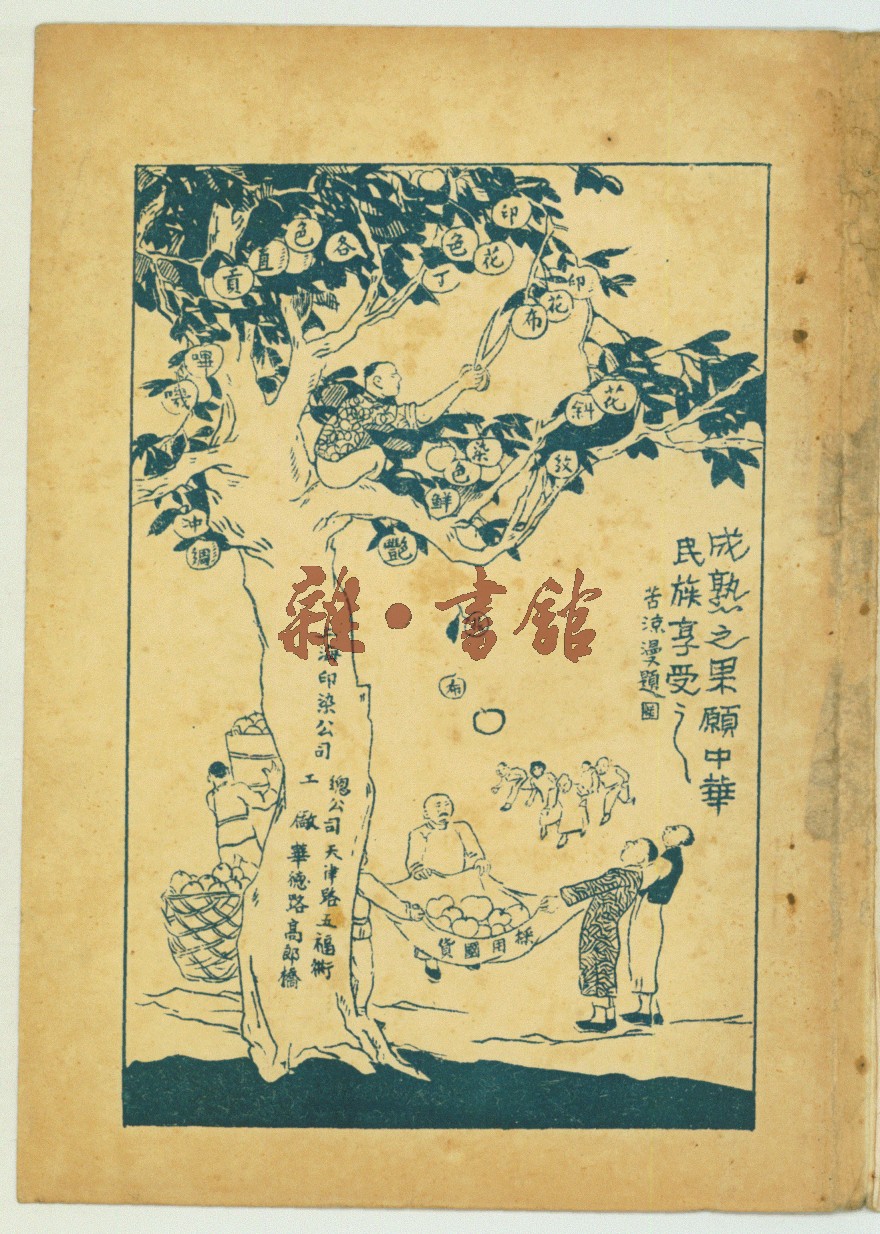 成熟之果願中華
民族享受之
苦涼漫題圖
各色直貢
印花色丁
印花布
花斜紋
嗶嘰
染色鮮艷
冲綢
布
雜·書舘
上海印染公司
總公司天津路五福衖
工廠華德路高郎橋
採用國貨